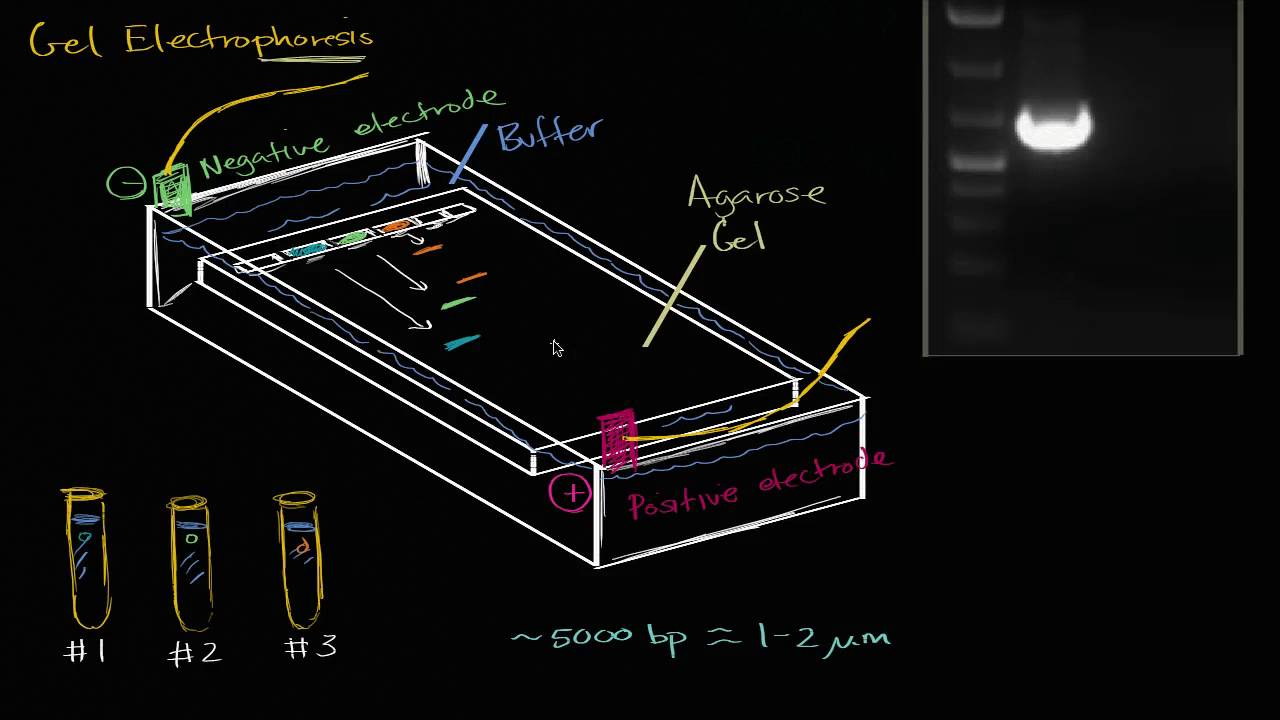 Gel Electrophoresis
Negative electrode
−
Buffer
Agarose
Gel
+
Positive electrode
#1
#2
#3
~5000 bp ≈ 1-2 μm